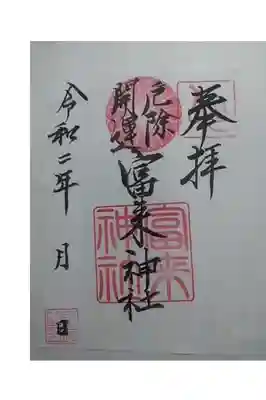 奉拝
厄除
開運
富来神社
富来
神社
令和二年 月
日